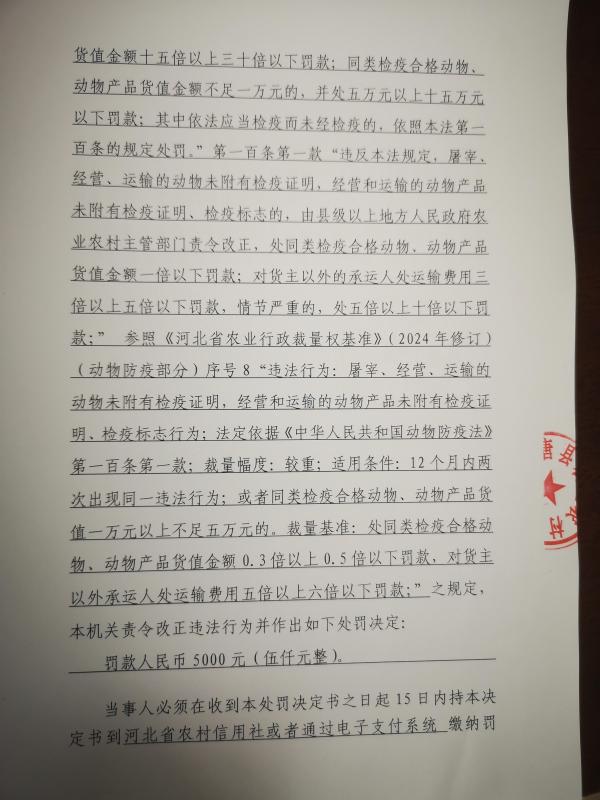 货值金额十五倍以上三十倍以下罚款；同类检疫合格动物、
动物产品货值金额不足一万元的，并处五万元以上十五万元
以下罚款；其中依法应当检疫而未经检疫的，依照本法第一
百条的规定处罚。”第一百条第一款“违反本法规定，屠宰、
经营、运输的动物未附有检疫证明，经营和运输的动物产品
未附有检疫证明、检疫标志的，由县级以上地方人民政府农
业农村主管部门责令改正，处同类检疫合格动物、动物产品
货值金额一倍以下罚款；对货主以外的承运人处运输费用三
倍以上五倍以下罚款，情节严重的，处五倍以上十倍以下罚
款；” 参照《河北省农业行政裁量权基准》（2024年修订）
（动物防疫部分）序号8“违法行为：屠宰、经营、运输的
动物未附有检疫证明，经营和运输的动物产品未附有检疫证
明、检疫标志行为；法定依据《中华人民共和国动物防疫法》
第一百条第一款；裁量幅度：较重；适用条件：12个月内两
次出现同一违法行为；或者同类检疫合格动物、动物产品货
值一万元以上不足五万元的。裁量基准：处同类检疫合格动
物、动物产品货值金额0.3倍以上0.5倍以下罚款，对货主
以外承运人处运输费用五倍以上六倍以下罚款；”之规定，
本机关责令改正违法行为并作出如下处罚决定：
罚款人民币5000元（伍仟元整）。
当事人必须在收到本处罚决定书之日起15日内持本决
定书到河北省农村信用社或者通过电子支付系统 缴纳罚
唐县
村农